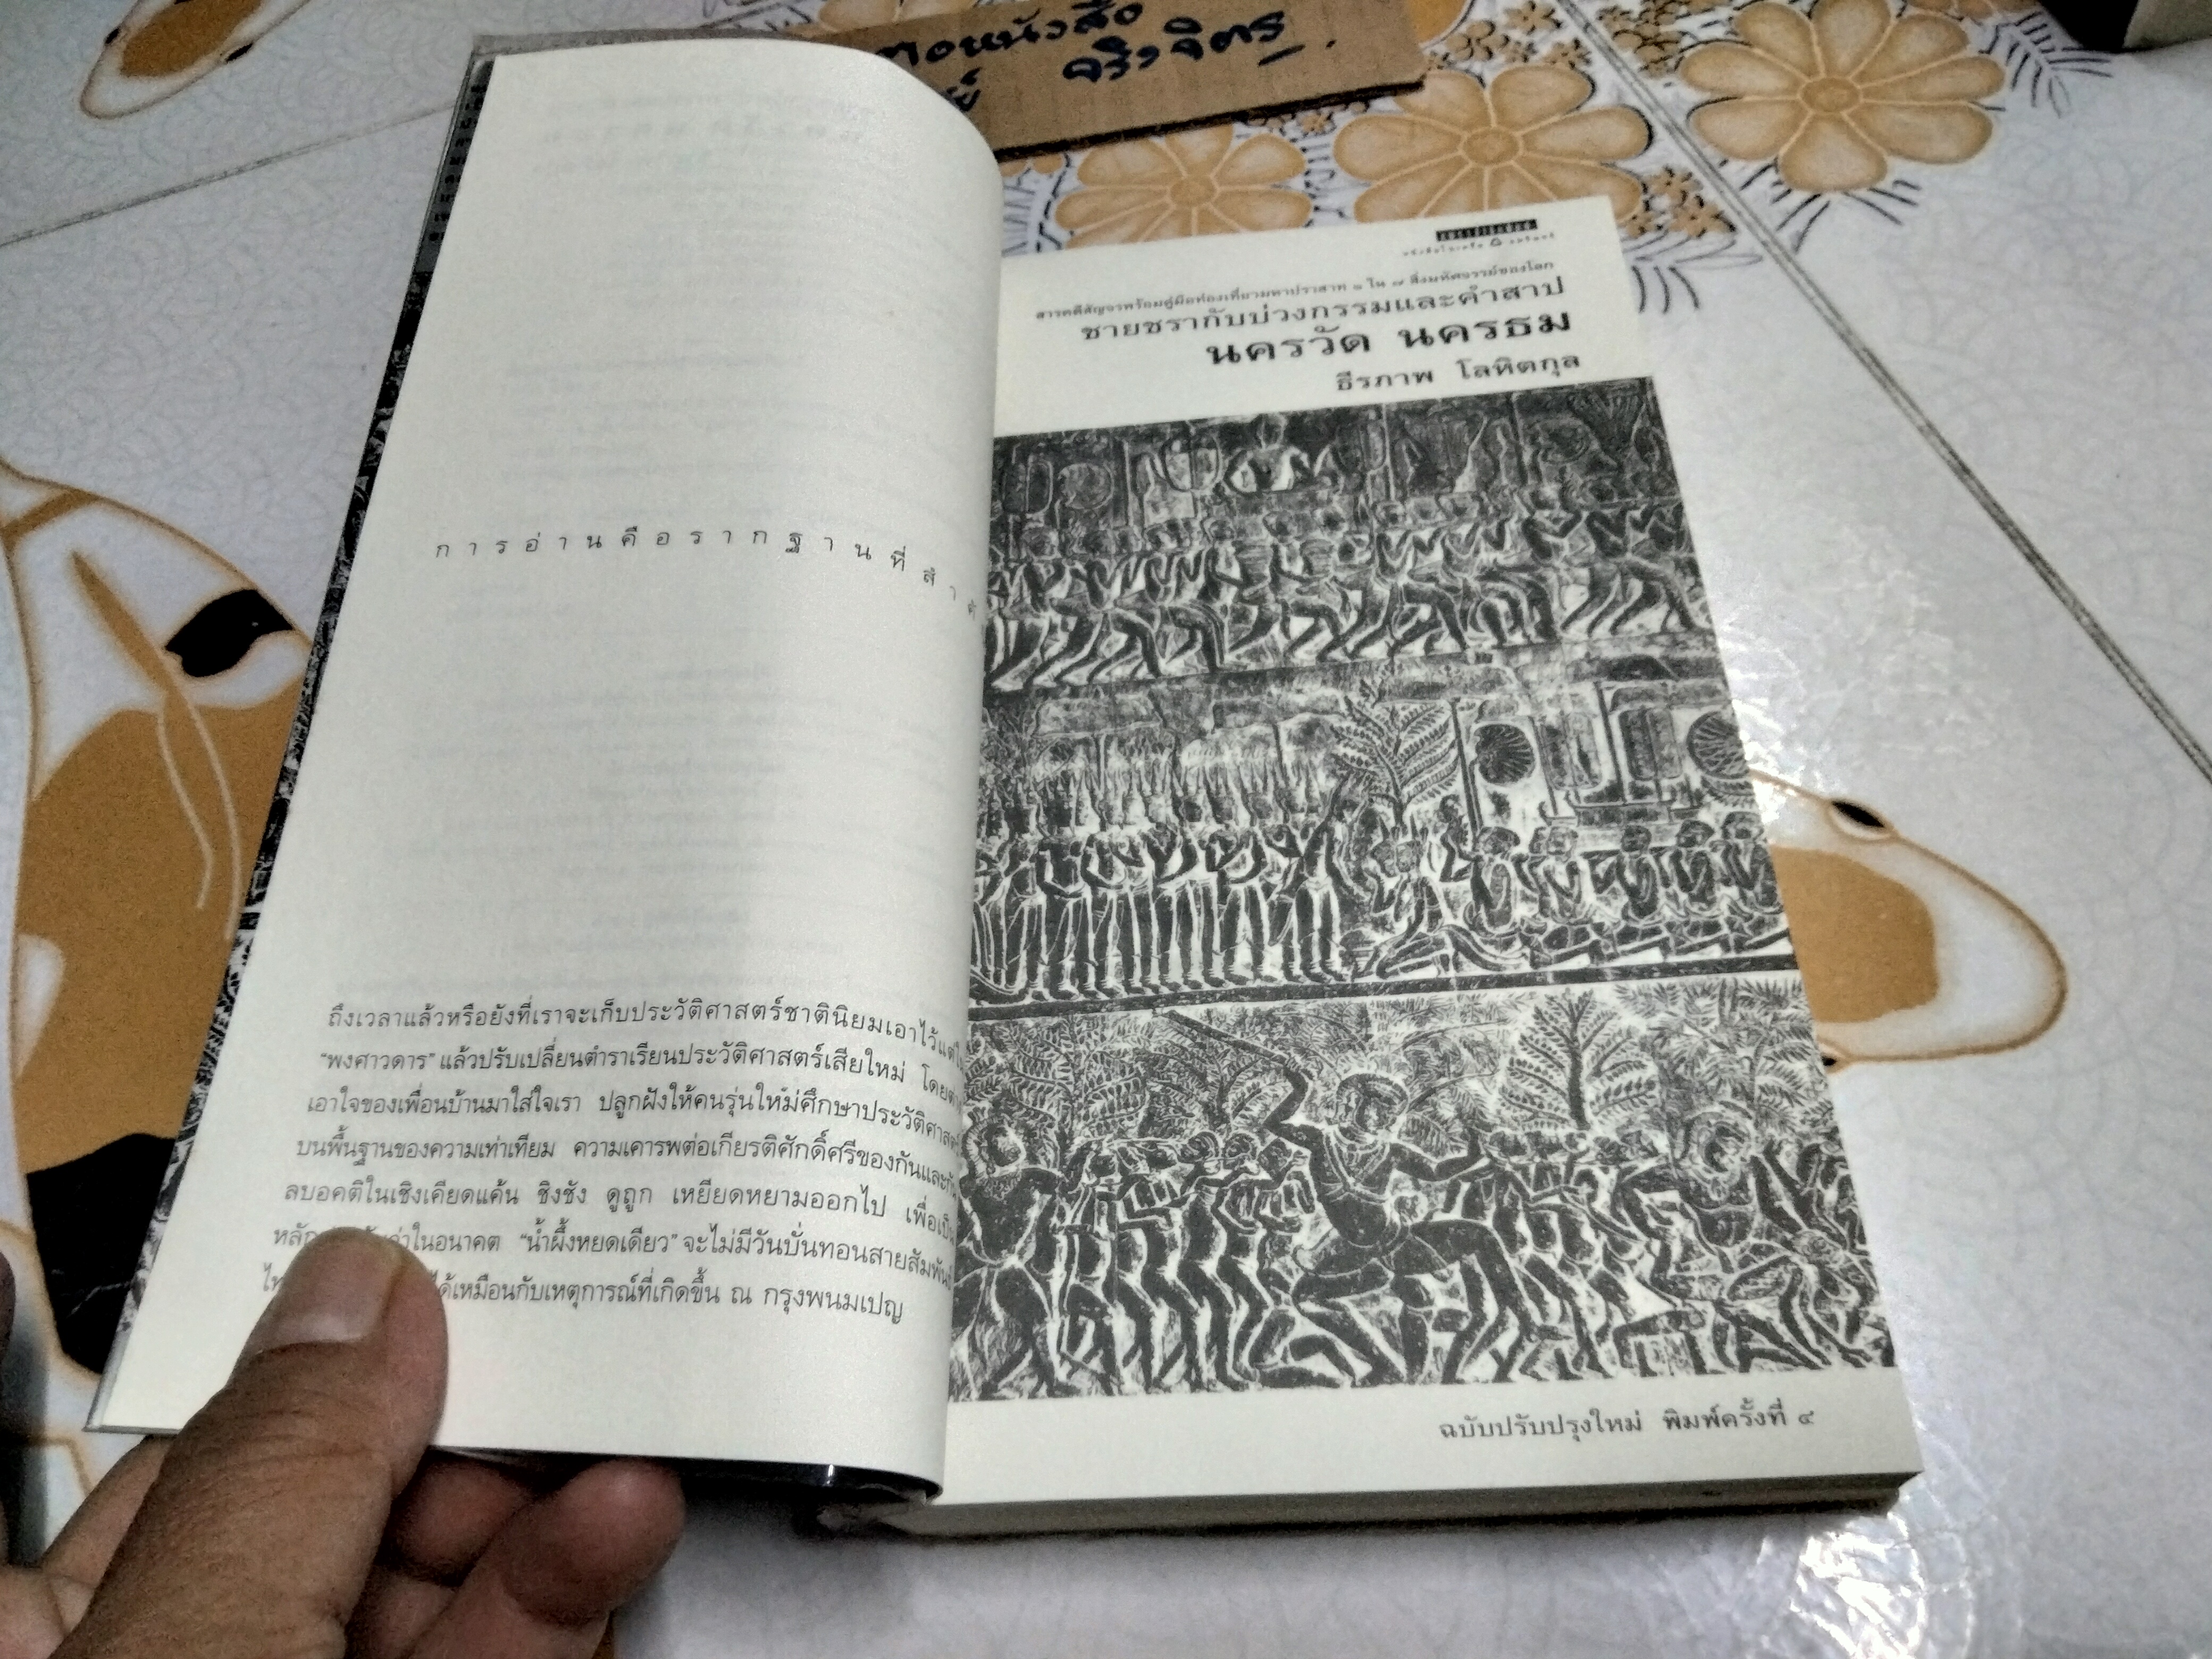 ตอหนังสือ
จริงจิตร
การอ่านคือรากฐานที่สำ
ถึงเวลาแล้วหรือยังที่เราจะเก็บประวัติศาสตร์ชาตินิยมเอาไว้แต่ใ
“พงศาวดาร” แล้วปรับเปลี่ยนตำราเรียนประวัติศาสตร์เสียใหม่ โดย
เอาใจของเพื่อนบ้านมาใส่ใจเรา ปลูกฝังให้คนรุ่นใหม่ศึกษาประวัติศาสต
บนพื้นฐานของความเท่าเทียม ความเคารพต่อเกียรติศักดิ์ศรีของกันและกั
ลบอคติในเชิงเคียดแค้น ชิงชัง ดูถูก เหยียดหยามออกไป เพื่อเป็น
หลัก ว่าในอนาคต “น้ำผึ้งหยดเดียว” จะไม่มีวันบั่นทอนสายสัมพันธ์
ได้เหมือนกับเหตุการณ์ที่เกิดขึ้น ณ กรุงพนมเปญ
สารคดีสัญจรพร้อมคู่มือท่องเที่ยวมหาปราสาท ๑ ใน ๗ สิ่งมหัศจรรย์ของโลก
ชายชรากับบ่วงกรรมและคำสาป
นครวัด นครธม
ธีรภาพ โลหิตกุล
ฉบับปรับปรุงใหม่ พิมพ์ครั้งที่ ๔